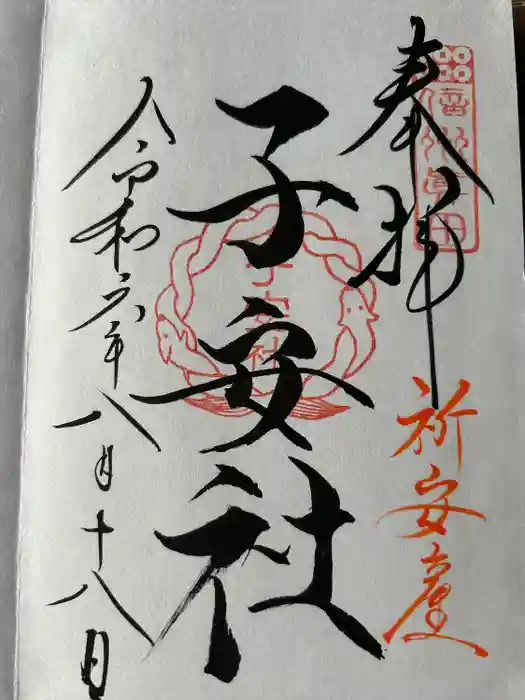 信州真田
奉拝
祈安産
子安社
子安社
令和六年八月十八日